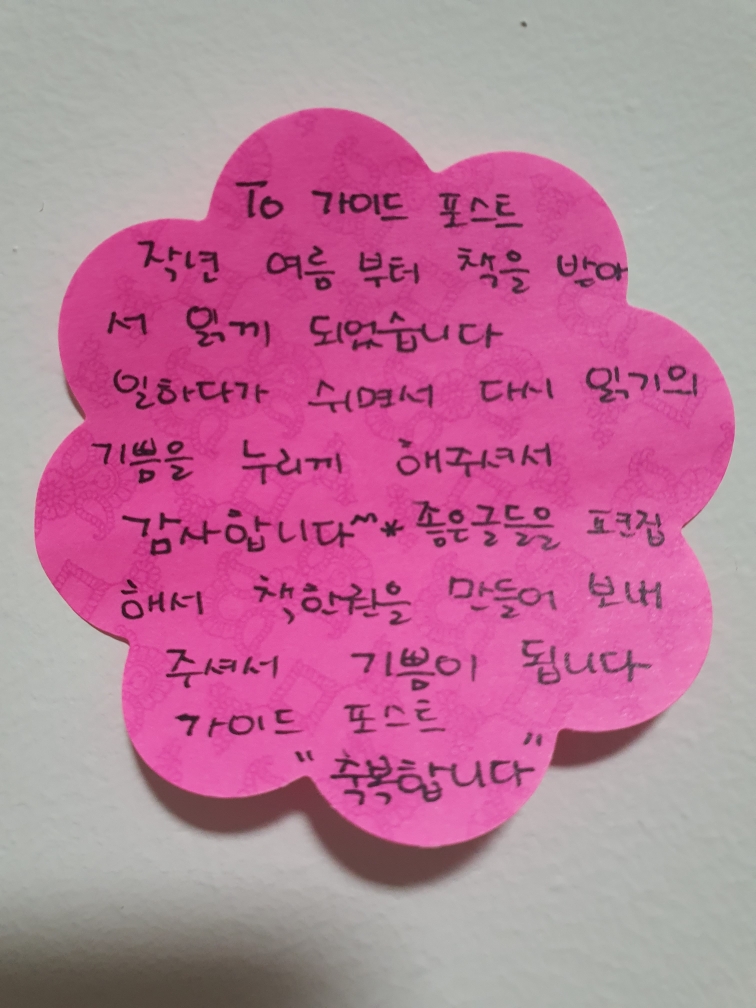 To 가이드 포스트
작년 여름 부터 책을 받아
서 읽게 되었습니다
일하다가 쉬면서 다시 읽기의
기쁨을 누리게 해주셔서
감사합니다^^* 좋은글들을 편집
해서 책한권을 만들어 보내
주셔서 기쁨이 됩니다
가이드 포스트
"축복합니다"